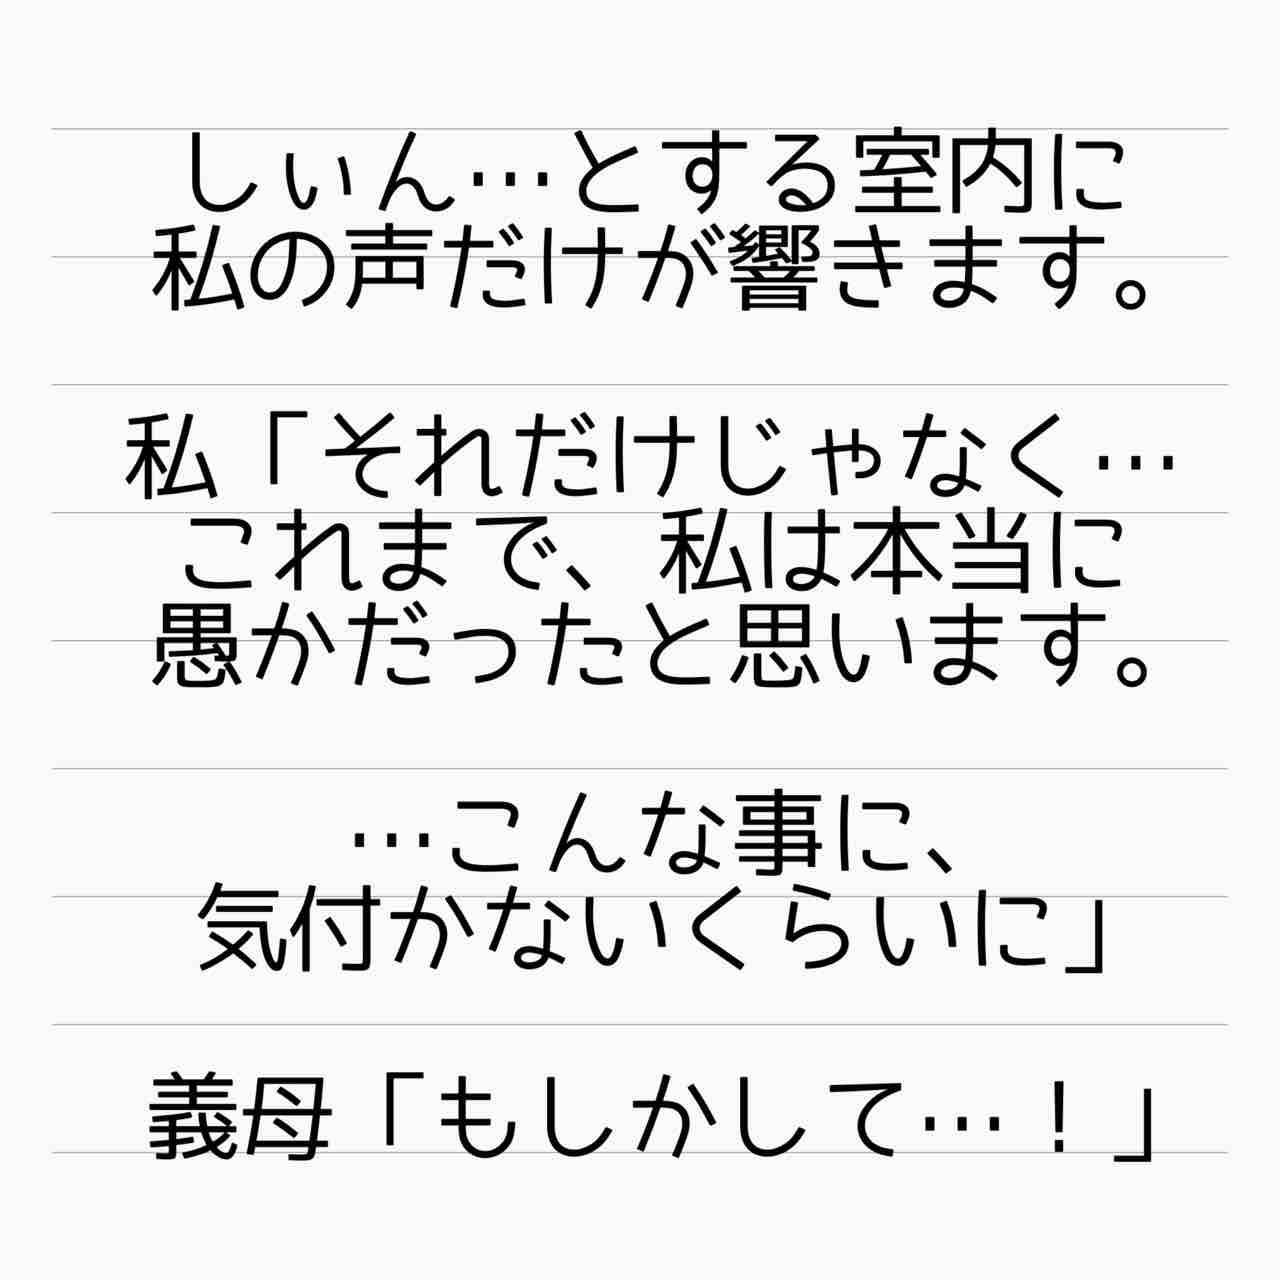 しぃん…とする室内に
私の声だけが響きます。
私「それだけじゃなく…
これまで、私は本当に
愚かだったと思います。
…こんな事に、
気付かないくらいに」
義母「もしかして…！」